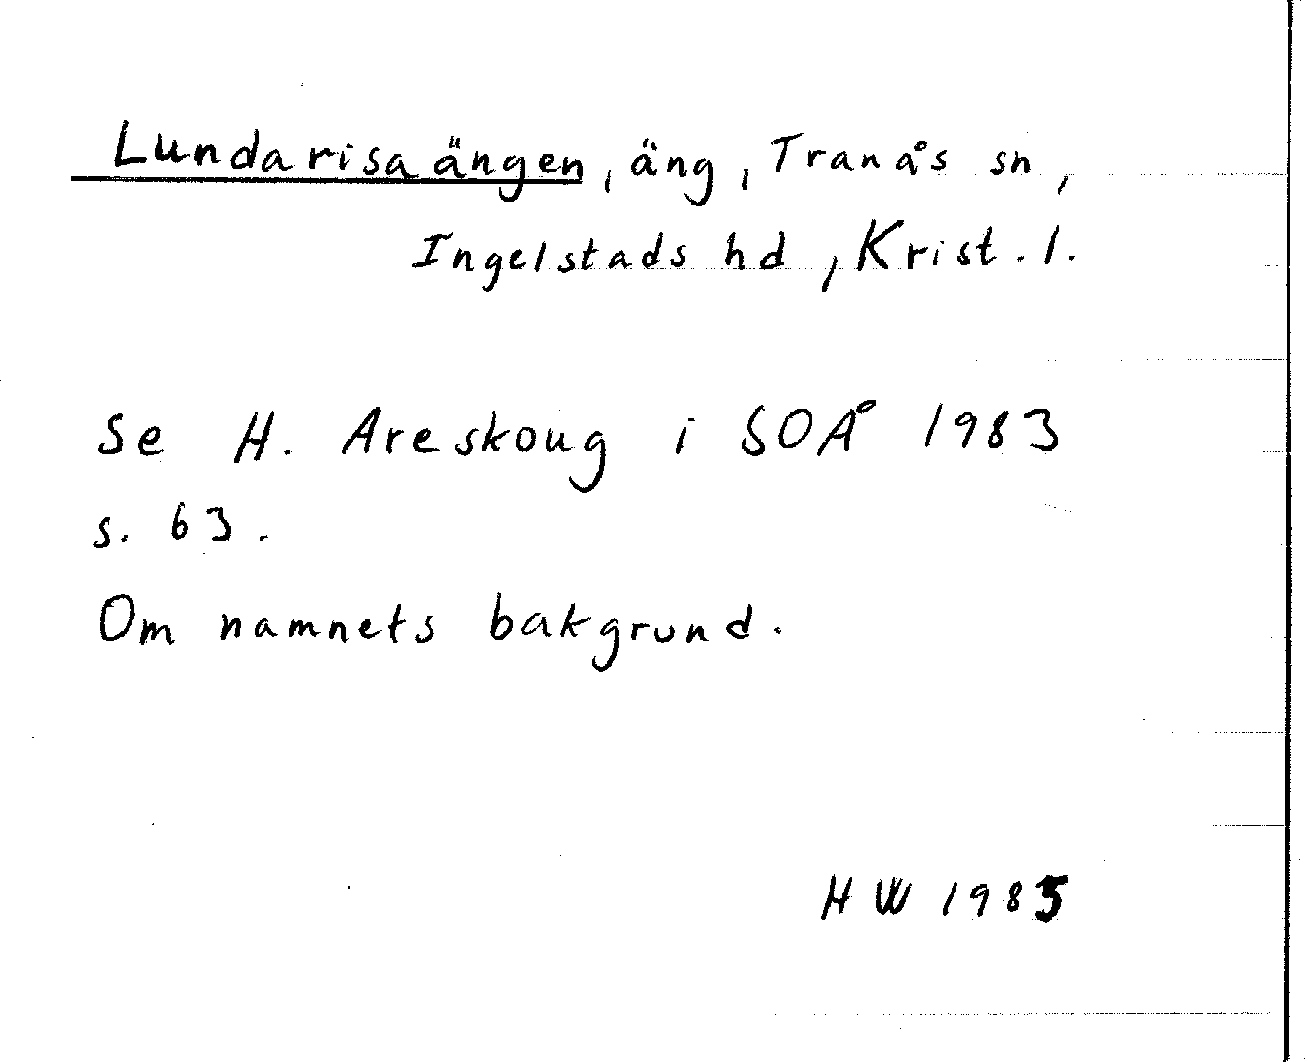 Lundarisaängen, äng, Tranås sn,
Ingelstads hd, Krist. l.
Se H. Areskoug i SOÅ 1983
s. 63.
Om namnets bakgrund.
HW 1985